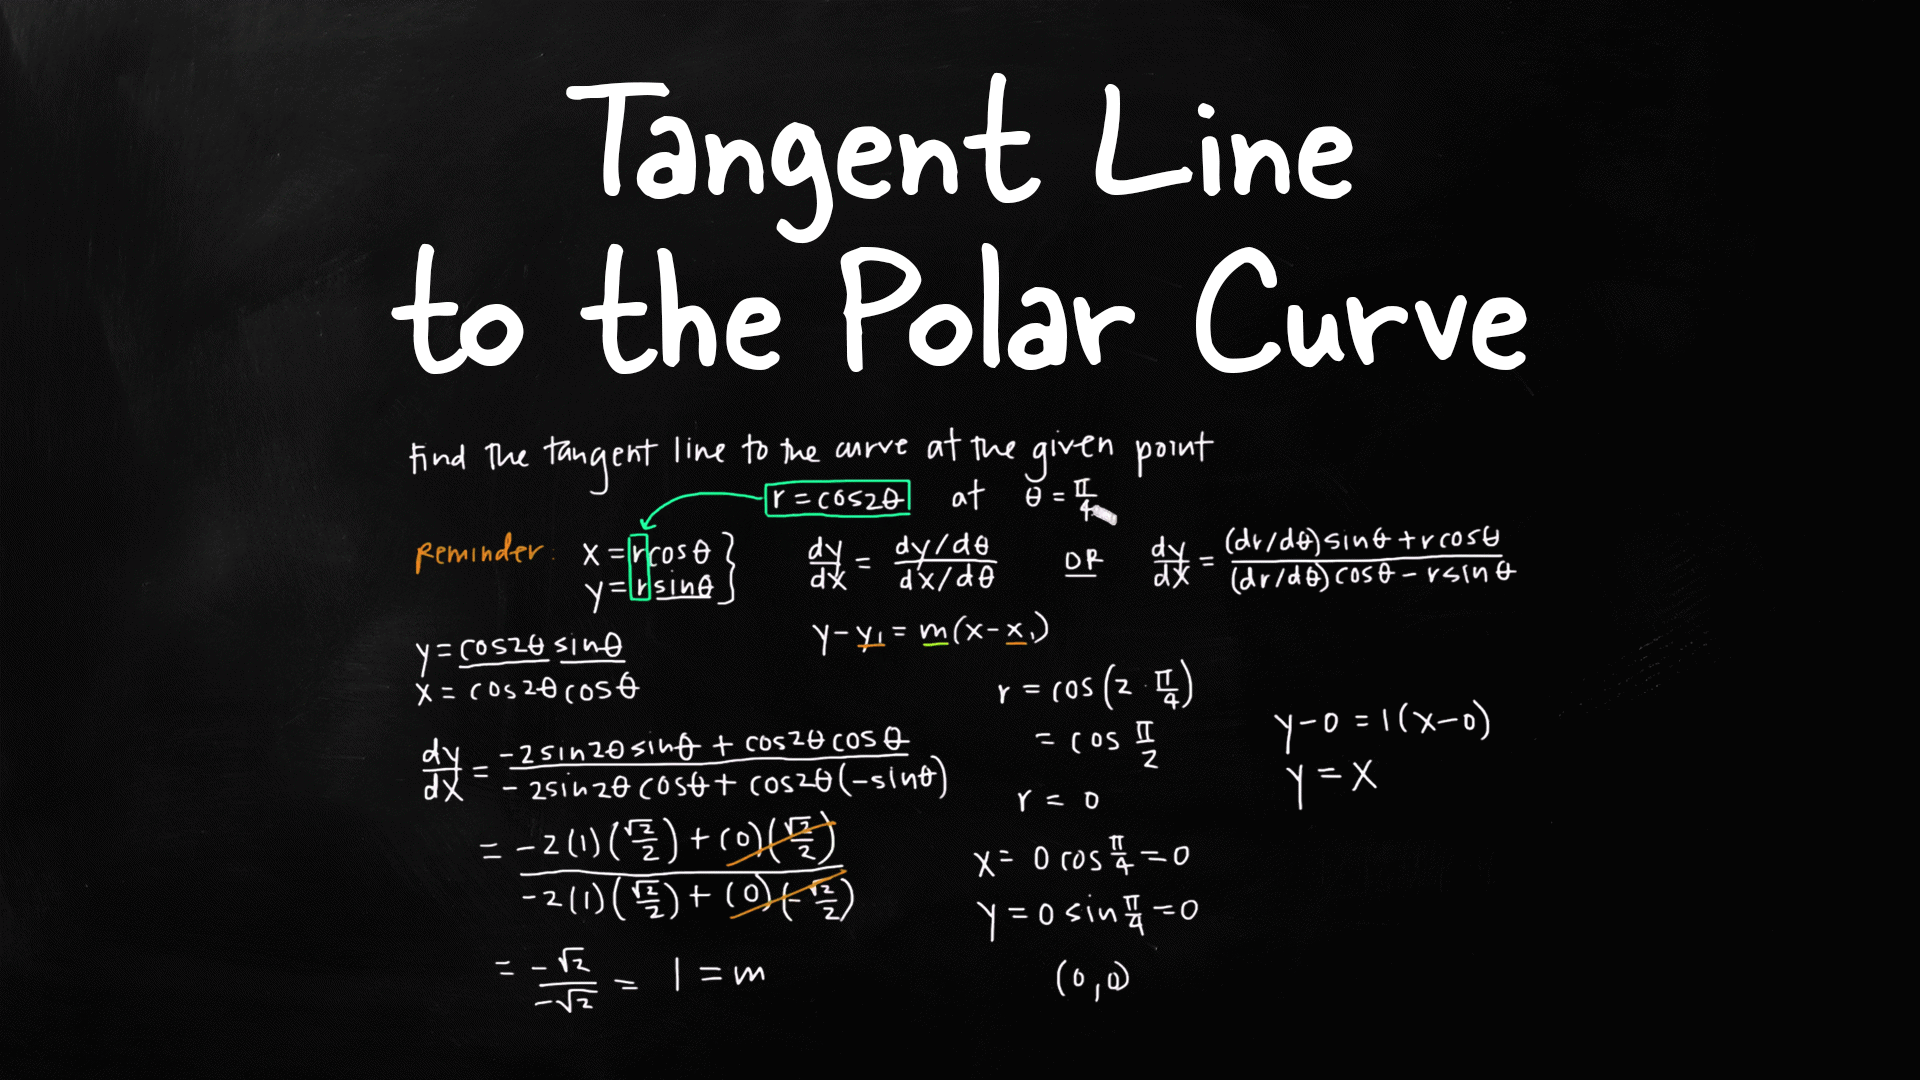 Tangent Line
to the Polar Curve
Find the tangent line to the curve at the given point
r = cos2θ at θ = π/4
Reminder: x = r cosθ } dy/dx = (dy/dθ)/(dx/dθ) OR dy/dx = ((dr/dθ) sinθ + r cosθ)/((dr/dθ) cosθ - r sinθ)
y = r sinθ
y - y₁ = m(x - x₁)
y = cos2θ sinθ
x = cos2θ cosθ
dy/dx = (-2sin2θ sinθ + cos2θ cosθ)/(-2sin2θ cosθ + cos2θ(-sinθ))
= (-2(1)(√2/2) + (0)(√2/2))/(-2(1)(√2/2) + (0)(-√2/2))
= -√2/-√2 = 1 = m
r = cos(2 · π/4)
= cos π/2
r = 0
x = 0 cos π/4 = 0
y = 0 sin π/4 = 0
(0,0)
y - 0 = 1(x - 0)
y = x